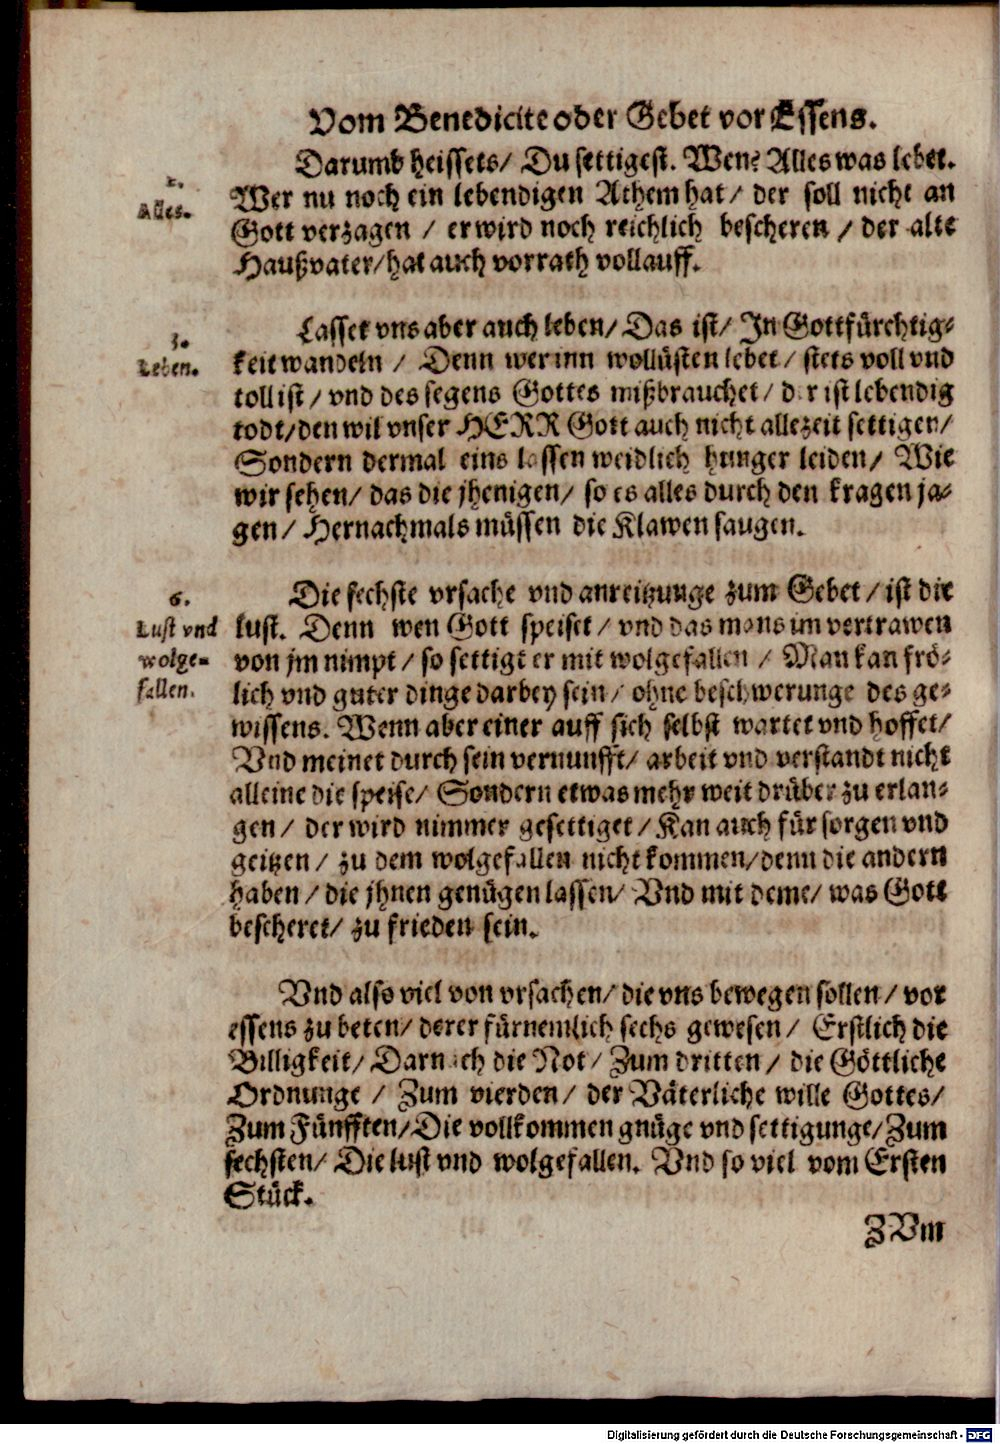 Vom Benedicite oder Gebet vor Essens.
Darumb heissets/ Du settigest. Wen? Alles was lebet.
2.
Alles.
Wer nu noch ein lebendigen Athem hat/ der soll nicht an
Gott verzagen / er wird noch reichlich bescheren / der alte
Haußvater/ hat auch vorrath vollauff.
Lasset vns aber auch leben/ Das ist/ In Gottfürchtig-
3.
Leben.
keit wandeln / Denn wer inn wollüsten lebet/ stets voll vnd
toll ist/ vnd des segens Gottes mißbrauchet/ der ist lebendig
todt/ den wil vnser HERR Gott auch nicht allezeit settigen/
Sondern dermal eins lassen weidlich hunger leiden/ Wie
wir sehen/ das die jhenigen/ so es alles durch den kragen ja-
gen/ Hernachmals müssen die Klawen saugen.
Die sechste vrsache vnd anreitzunge zum Gebet/ ist die
6.
Lust vnd
wolge-
fallen.
lust. Denn wen Gott speiset/ vnd das mans im vertrawen
von jm nimpt/ so settigt er mit wolgefallen / Man kan frö-
lich vnd guter dinge darbey sein/ ohne beschwerunge des ge-
wissens. Wenn aber einer auff sich selbst wartet vnd hoffet/
Vnd meinet durch sein vernunfft/ arbeit vnd verstandt nicht
alleine die speise/ Sondern etwas mehr weit drüber zu erlan-
gen/ der wird nimmer gesettiget/ Kan auch für sorgen vnd
geitzen/ zu dem wolgefallen nicht kommen/ denn die andern
haben/ die jhnen genügen lassen/ Vnd mit deme/ was Gott
bescheret/ zu frieden sein.
Vnd also viel von vrsachen/ die vns bewegen sollen/ vor
essens zu beten/ derer fürnemlich sechs gewesen/ Erstlich die
Billigkeit/ Darnach die Not/ Zum dritten/ die Göttliche
Ordnunge / Zum vierden/ der Väterliche wille Gottes/
Zum Fünfften/ Die vollkommen gnüge vnd settigunge/ Zum
sechsten/ Die lust vnd wolgefallen. Vnd so viel vom Ersten
Stück.
ZVm
Digitalisierung gefördert durch die Deutsche Forschungsgemeinschaft - DFG